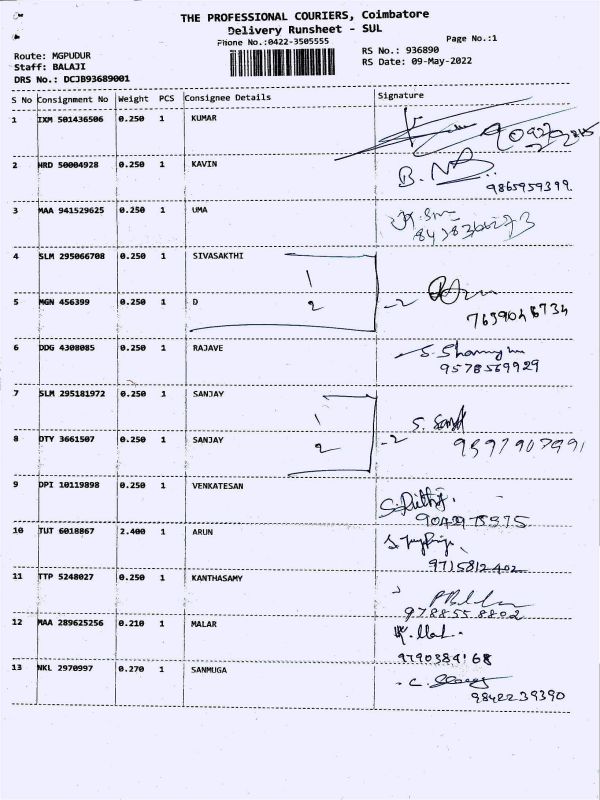 THE PROFESSIONAL COURIERS, Coimbatore
Delivery Runsheet - SUL
Phone No.:0422-3505555
Page No.:1
Route: MGPUDUR
RS No.: 936890
Staff: BALAJI
RS Date: 09-May-2022
DRS No.: DCJB93689001
S No Consignment No Weight PCS Consignee Details Signature
1 IXM 501436506 0.250 1 KUMAR
2 HRD 50004928 0.250 1 KAVIN B.
9865959399
3 MAA 941529625 0.250 1 UMA
4 SLM 295066708 0.250 1 SIVASAKTHI 1
5 MGN 456399 0.250 1 D 2 -2
7639048734
6 DDG 4308085 0.250 1 RAJAVE S.
9578569929
7 SLM 295181972 0.250 1 SANJAY 1 S.
8 DTY 3661507 0.250 1 SANJAY 2 -2 9597907991
9 DPI 10119898 0.250 1 VENKATESAN
10 TUT 6018867 2.400 1 ARUN
9715812402
11 TTP 5248027 0.250 1 KANTHASAMY
9788558802
12 MAA 289625256 0.210 1 MALAR
9790384168
13 NKL 2970997 0.270 1 SANMUGA C.
9842239390